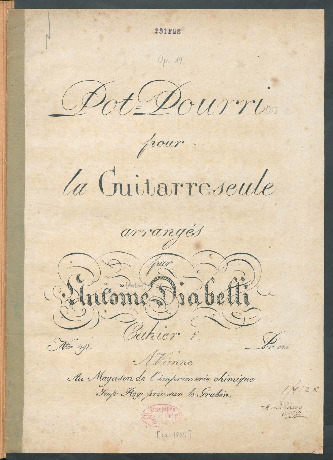 Op. 19
Pot-Pourri
pour
la Guitarre seule
arrangés
par
Antoine Diabelli
Cahier 1
A Vienne
Au Magasin de l'imprimerie chimique
Imp: Roy: priv: sur le Graben.